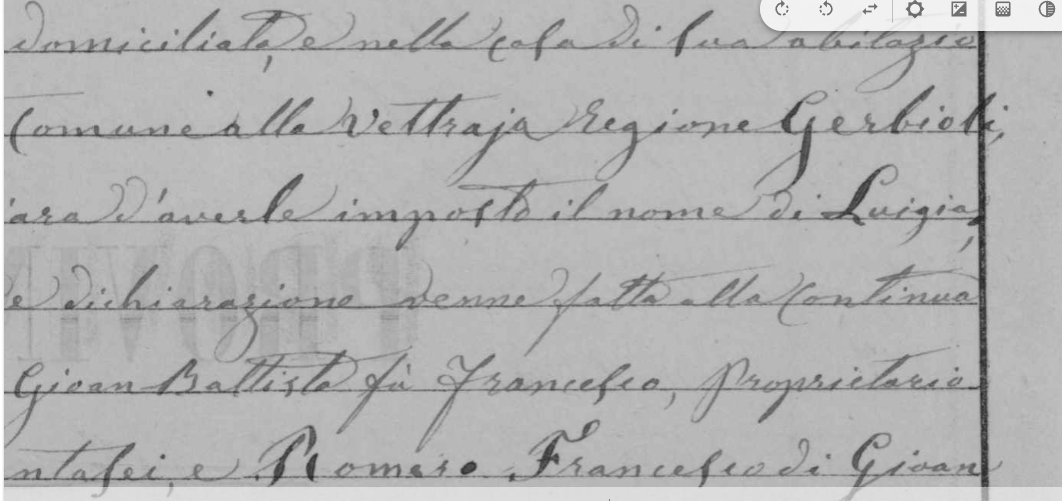 domiciliata, e nella casa di sua abitazio
Comune alla Vettraja Regione Gerbioli,
iara d'averle imposto il nome di Luigia,
e dichiarazione venne fatta alla continua
Gioan Battista fù Francesco, Proprietario
ntasei, e Romero Francesco di Gioan